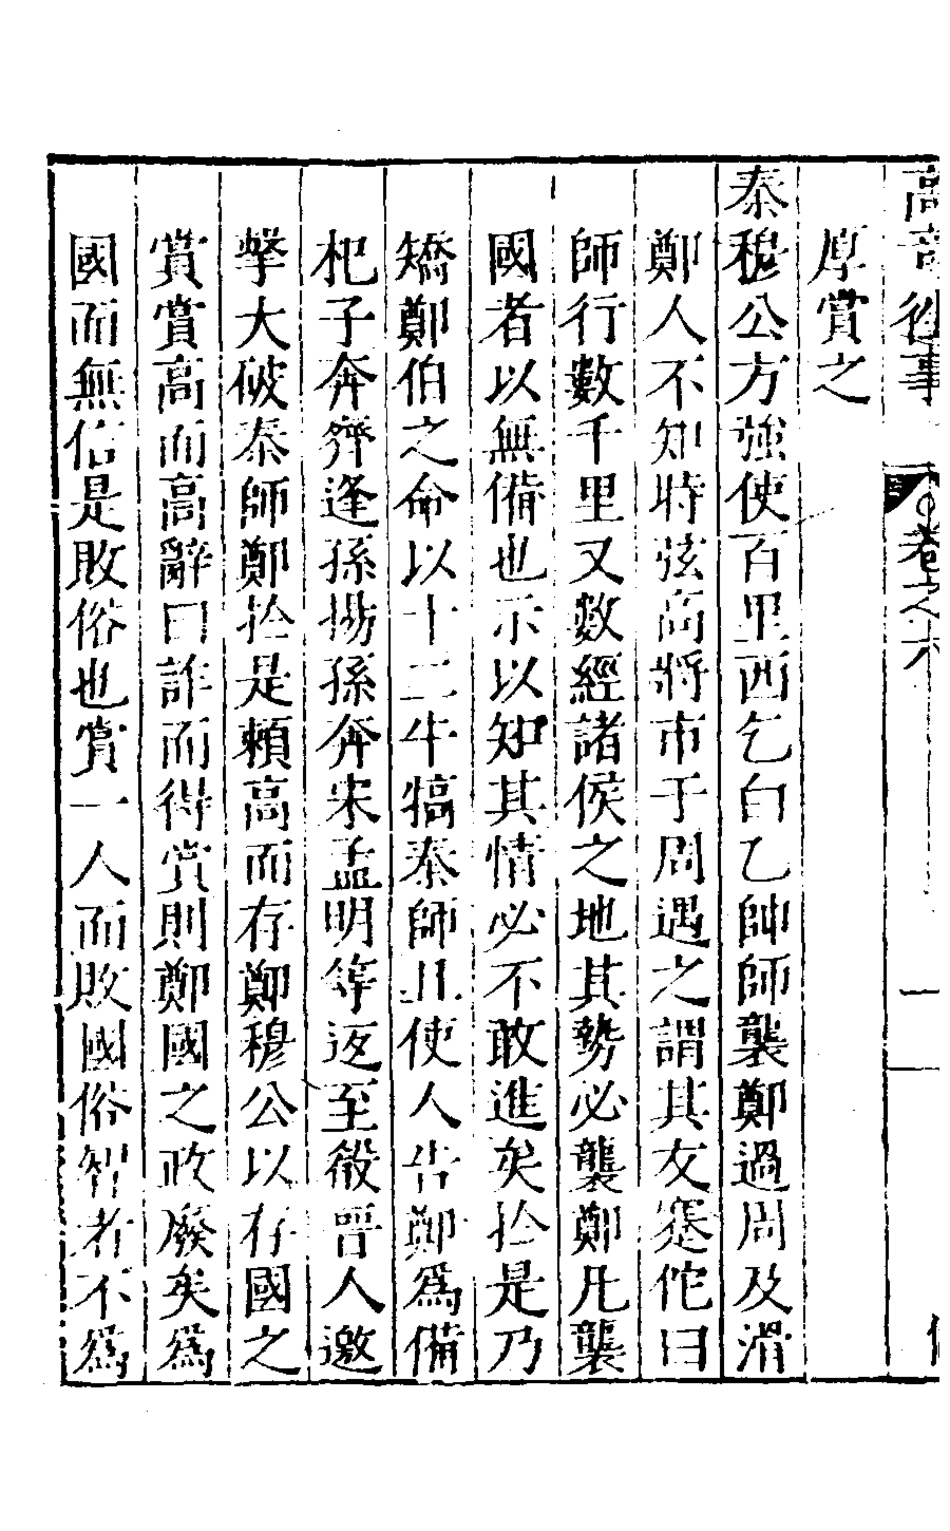 高奇徃事 卷之六 一
厚賞之
秦穆公方強使百里西乞白乙帥師襲鄭過周及滑
鄭人不知時弦高將市于周遇之謂其友蹇佗曰
師行數千里又數經諸侯之地其勢必襲鄭凡襲
國者以無備也示以知其情必不敢進矣於是乃
矯鄭伯之命以十二牛犒秦師且使人告鄭爲備
杞子奔齊逢孫揚孫奔宋孟明等返至殽晉人邀
擊大破秦師鄭於是賴高而存鄭穆公以存國之
賞賞高而高辭曰詐而得賞則鄭國之政廢矣爲
國而無信是敗俗也賞一人而敗國俗智者不爲